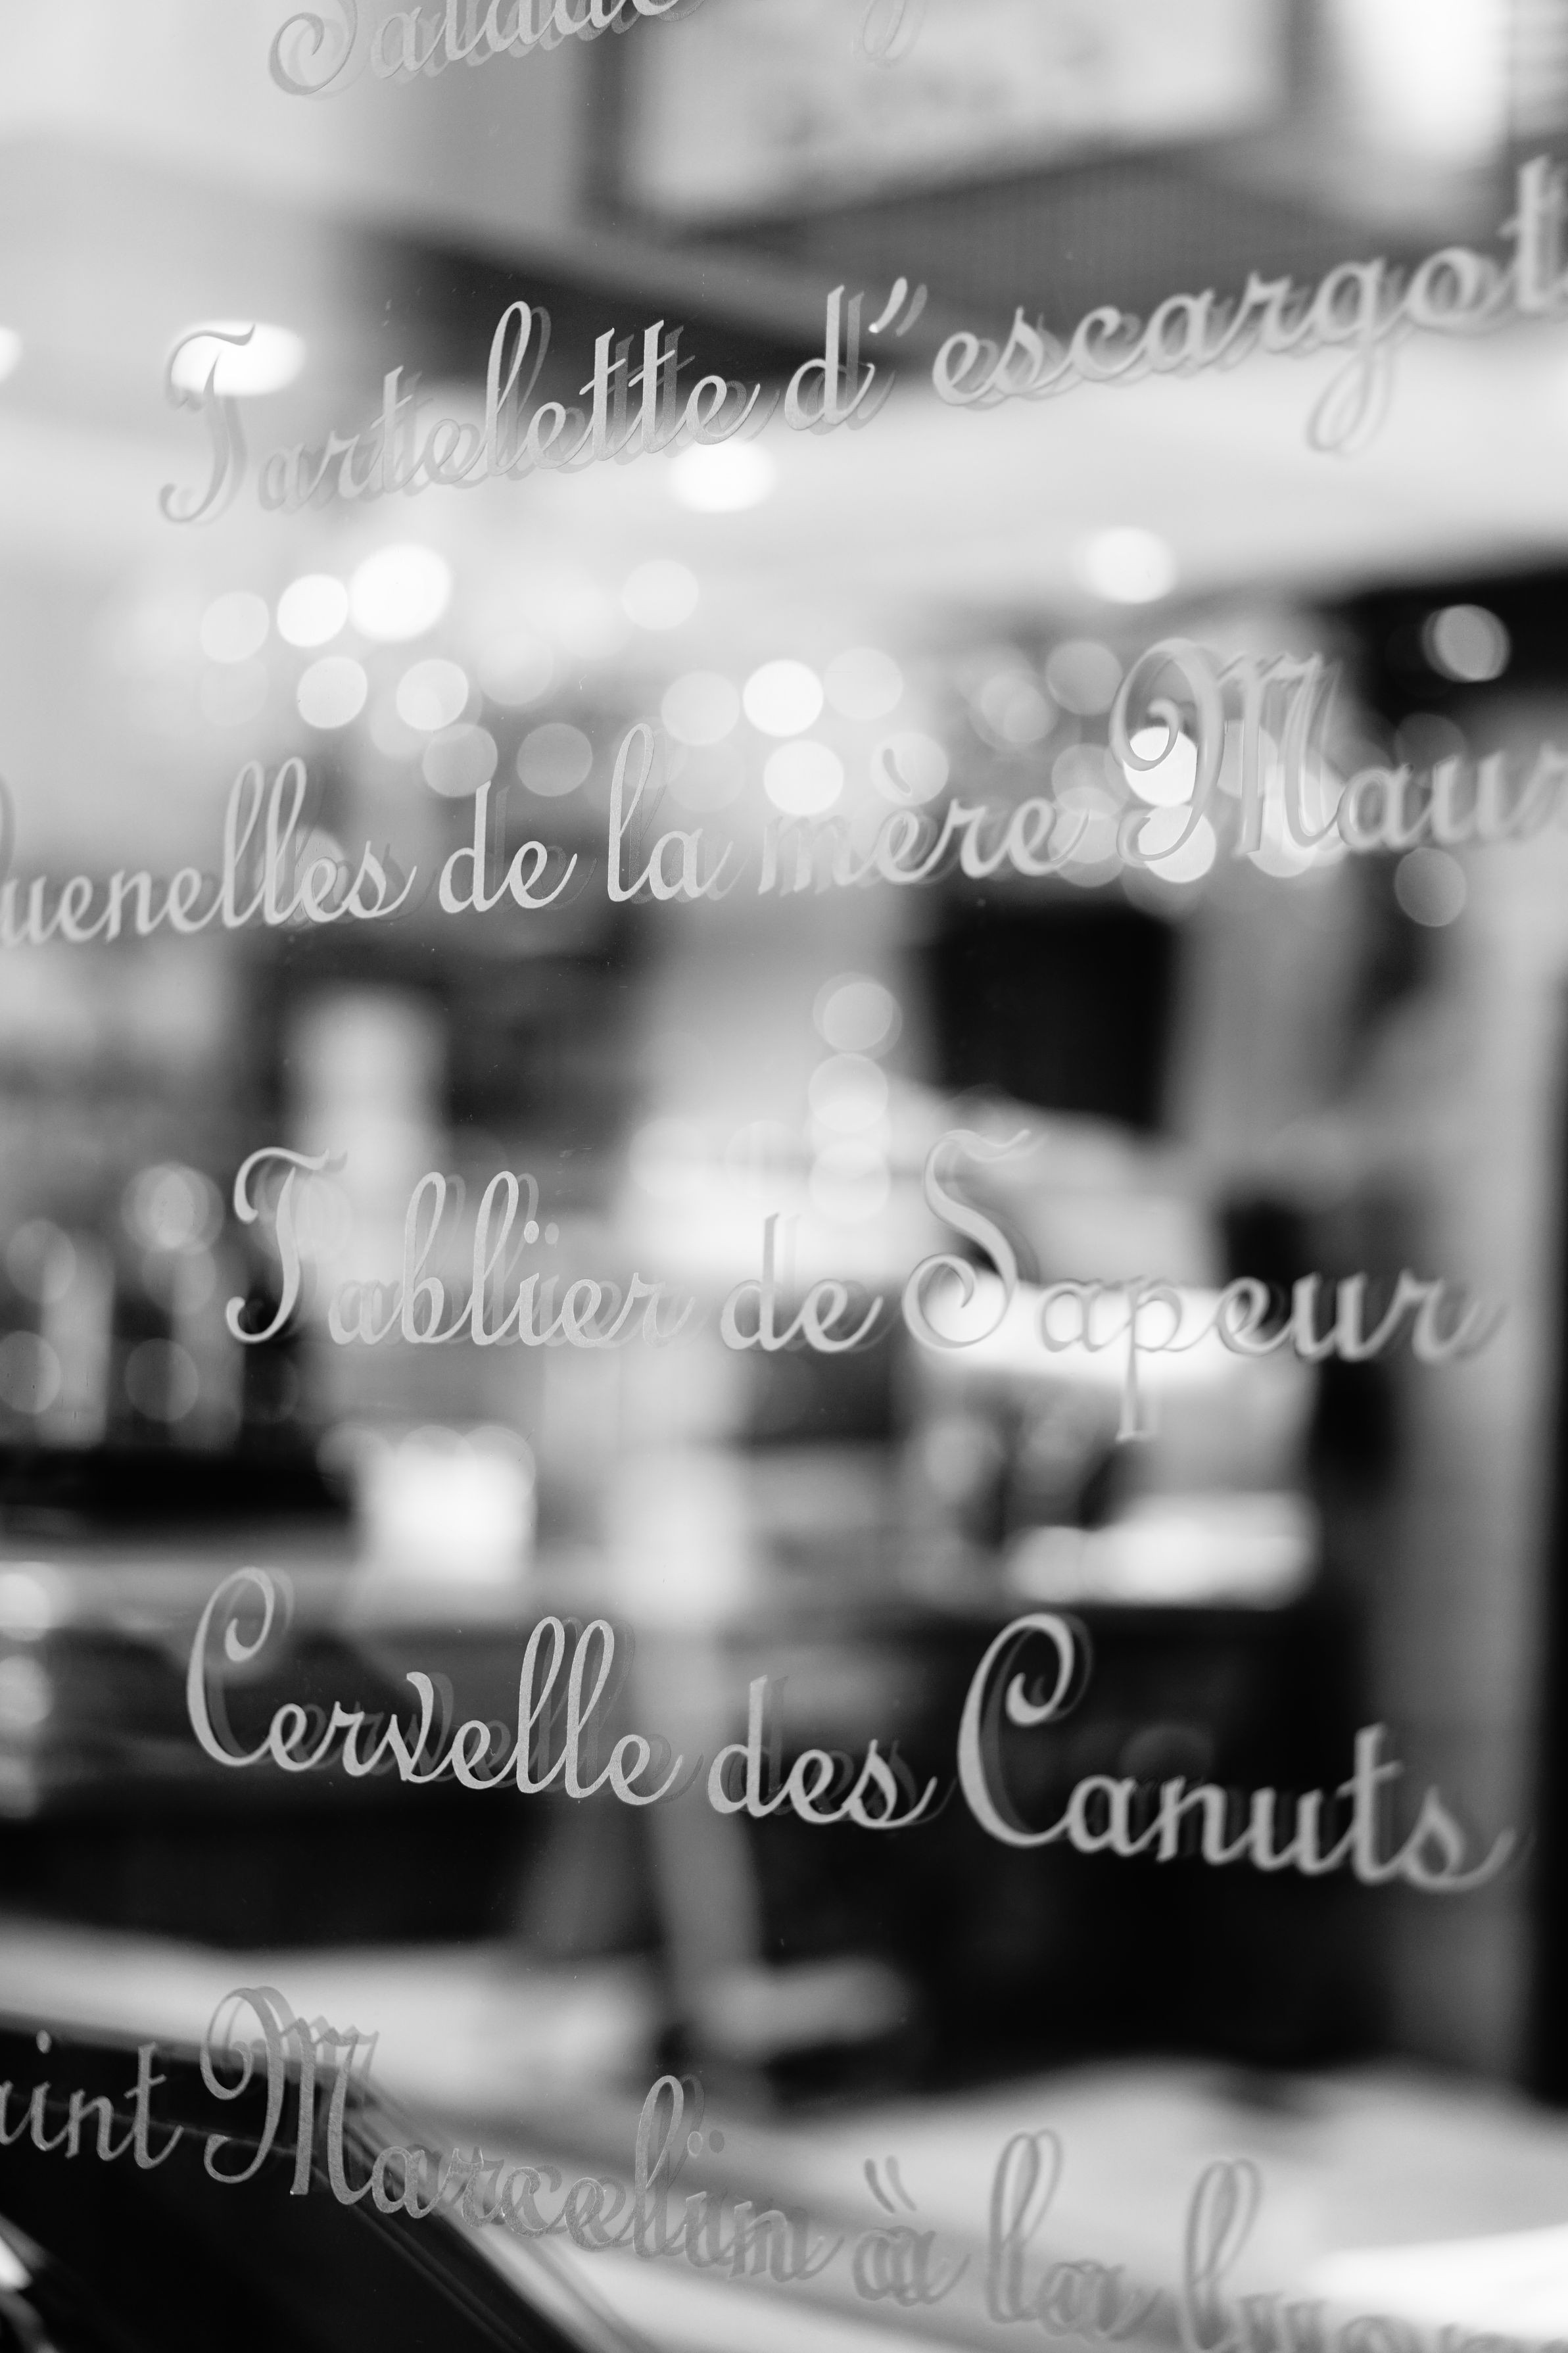 Salade
Tartelette d'escargot
uenelles de la mère Maur
Tablier de Sapeur
Cervelle des Canuts
aint Marcelin à la lyon